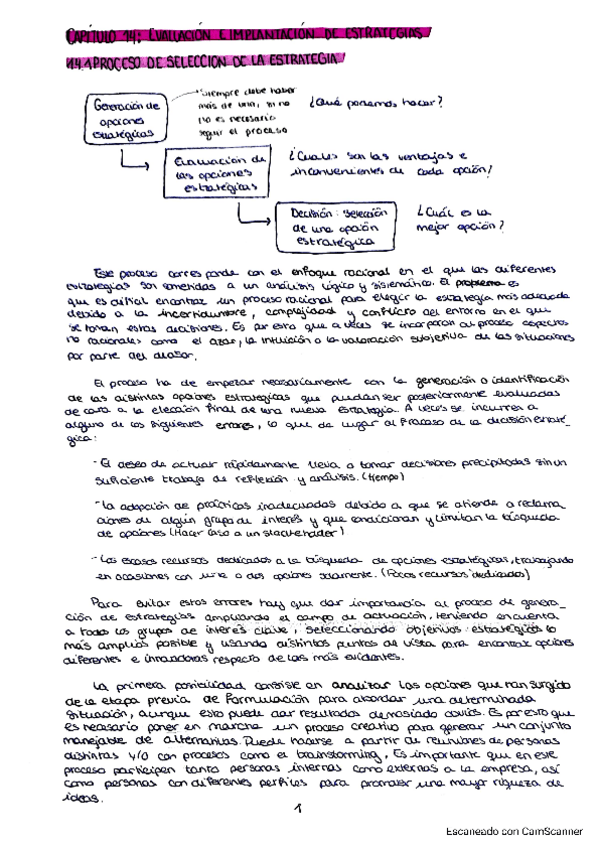 CAPÍTULO 14: EVALUACIÓN E IMPLANTACIÓN DE ESTRATEGIAS
14.1 PROCESO DE SELECCION DE LA ESTRATEGIA
Generación de
opciones
estratégicas
Siempre debe haber
más de una, si no
no es necesario
seguir el proceso
¿Qué podemos hacer?
Evaluación de
las opciones
estratégicas
¿Cuales son las ventajas e
inconvenientes de cada opción?
Decisión: selección
de una opción
estratégica
¿Cuál es la
mejor opción?
Este proceso corresponde con el enfoque racional en el que las diferentes
estrategias son sometidas a un análisis lógico y sistemático. El problema es
que es difícil encontrar un proceso racional para elegir la estrategia más adecuada
debido a la incertidumbre, complejidad y conflicto del entorno en el que
se toman estas decisiones. Es por esto que a veces se incorporan al proceso aspectos
no racionales como el azar, la intuición o la valoración subjetiva de las situaciones
por parte del decisor.
El proceso ha de empezar necesariamente con la generación o identificación
de las distintas opciones estrategicas que puedan ser posteriormente evaluadas
de cara a la elección final de una nueva estrategia. A veces se incurren a
alguno de los siguientes errores, lo que da lugar al fracaso de la decisión estraté-
gica:
- El deseo de actuar rápidamente lleva a tomar decisiones precipitadas sin un
suficiente trabajo de reflexión y análisis. (tiempo)
- La adopción de prácticas inadecuadas debido a que se atiende a reclama
ciones de algún grupo de interés y que condicionan y limitan la búsqueda
de opciones (Hacer caso a un stakeholder)
- Los escasos recursos dedicados a la búsqueda de opciones estratégicas, trabajando
en ocasiones con una o dos opciones solamente. (Pocos recursos dedicados)
Para evitar estos errores hay que dar importancia al proceso de genera_
ción de estrategias ampliando el campo de actuación, teniendo en cuenta
a todos los grupos de interés clave, seleccionando objetivos estratégicos lo
más amplios posible y usando distintos puntos de vista para encontrar opciones
diferentes e innovadoras respecto de las más evidentes.
La primera posibilidad consiste en analizar las opciones que han surgido
de la etapa previa de formulación para abordar una determinada
situación, aunque esto puede dar resultados demasiado obvios. Es por esto que
es necesario poner en marcha un proceso creativo para generar un conjunto
manejable de alternativas. Puede hacerse a partir de reuniones de personas
distintas y/o con procesos como el brainstorming. Es importante que en este
proceso participen tanto personas internas como externas a la empresa, así
como personas con diferentes perfiles para promover una mayor riqueza de
ideas.
1
Escaneado con CamScanner